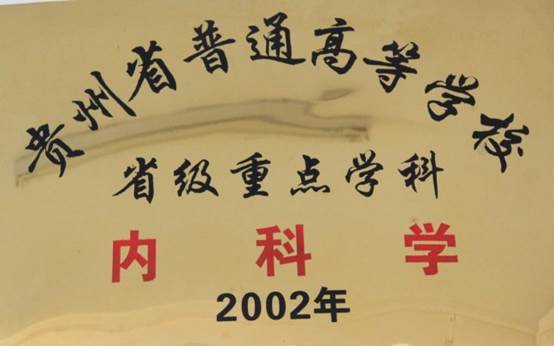 贵州省普通高等学校
省级重点学科
内科学
2002年